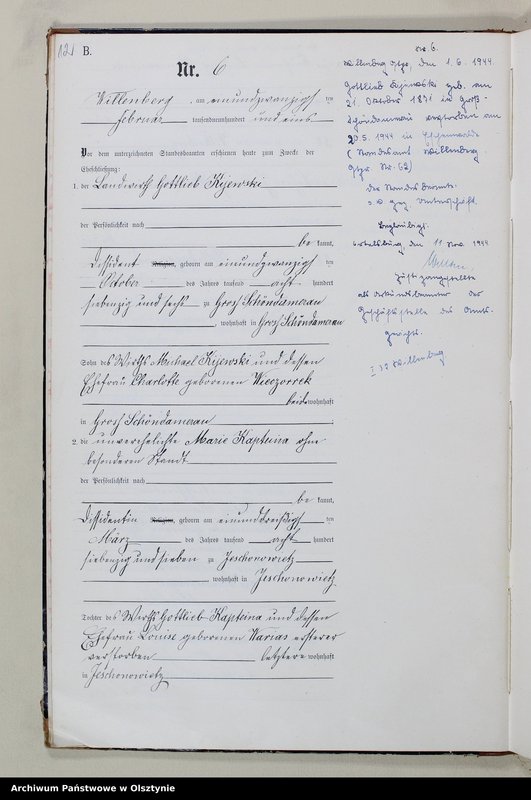 121 B.
Nr. 6
Willenberg, am einundzwanzigsten
Februar tausendneunhundert und eins
Vor dem unterzeichneten Standesbeamten erschienen heute zum Zwecke der
Eheschließung:
1. der Landwirth Gottlieb Kijewski
der Persönlichkeit nach
bekannt,
Dissident Religion, geboren am einundzwanzigsten
Oktober des Jahres tausend acht hundert
siebenzig und sechs zu Groß Schöndamerau
, wohnhaft in Groß Schöndamerau
Sohn des Wirths Michael Kijewski und dessen
Ehefrau Charlotte geborenen Wieczorrek
beide wohnhaft
in Groß Schöndamerau
2. die unverehelichte Marie Kapteina ohne
besonderen Stand
der Persönlichkeit nach
bekannt,
Dissidentin Religion, geboren am einunddreißigsten
März des Jahres tausend acht hundert
siebenzig und sieben zu Jeschonowietz
, wohnhaft in Jeschonowietz
Tochter des Wirths Gottlieb Kapteina und dessen
Ehefrau Louise geborenen Warias ersterer
verstorben letztere wohnhaft
in Jeschonowietz
Nr. 6.
Willenberg Ostpr., den 1. 6. 1944
Gottlieb Kijewski geb. am
21. Oktober in Groß
Schöndamerau verstorben am
20.5.1944 in
(Standesamt Willenberg
Ostpr. Nr. 62)
Der Standesbeamte.
gez. Unterschrift.
Beglaubigt.
Ortelsburg, den 11 Nov. 1944
Justizangestellte
als Urkundsbeamter der
Geschäftsstelle des Amts-
gerichts.
Willenberg
Archiwum Państwowe w Olsztynie